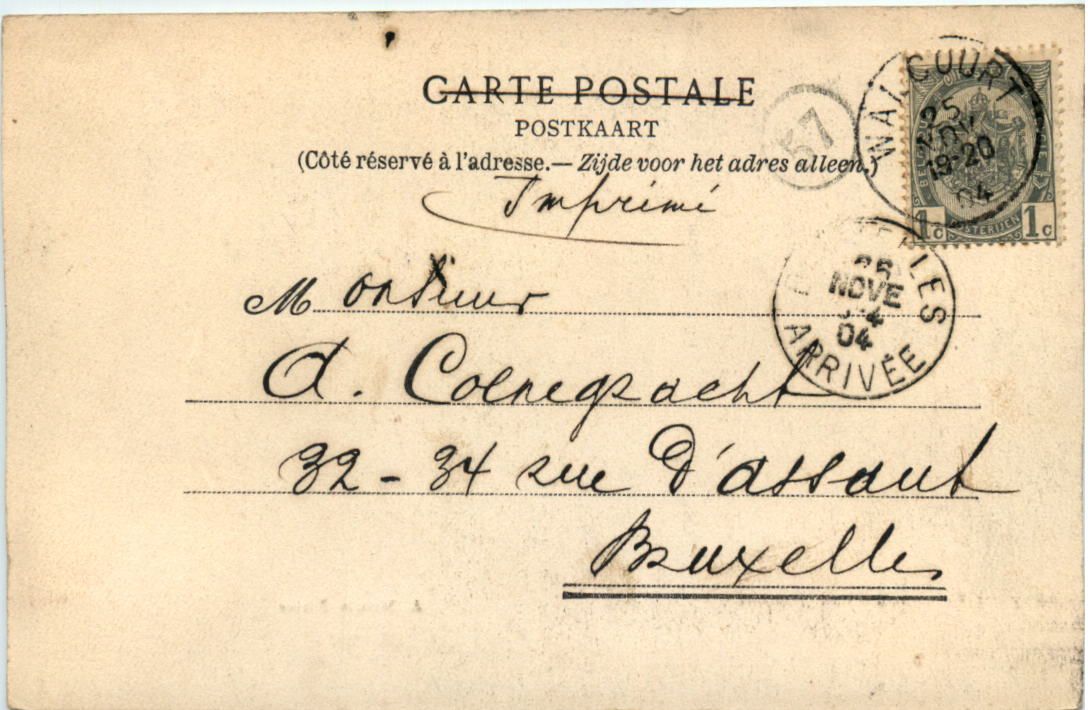 CARTE POSTALE
POSTKAART
(Côté réservé à l'adresse.— Zijde voor het adres alleen.)
Imprimé
57
WALCOURT
25
19-20
04
1c OSTERIJEN 1c
LES
NOVE
04
ARRIVÉE
Monsieur
A. Coenegracht
32 - 34 rue D'assaut
Bruxelles